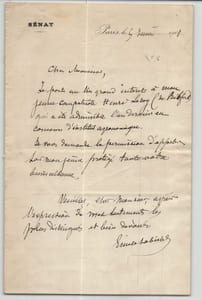 SÉNAT
Paris, le 5
Cher Monsieur,
Je porte un grand intérêt à mon
jeune compatriote Henri Leroy
qui a été admissible
concours d'institut agronomique.
Je vous demande la permission d'appeler
sur mon jeune protégé toute votre
bienveillance.
Veuillez, cher Monsieur, agréer
l'expression de mes sentiments les
plus distingués et bien dévoués